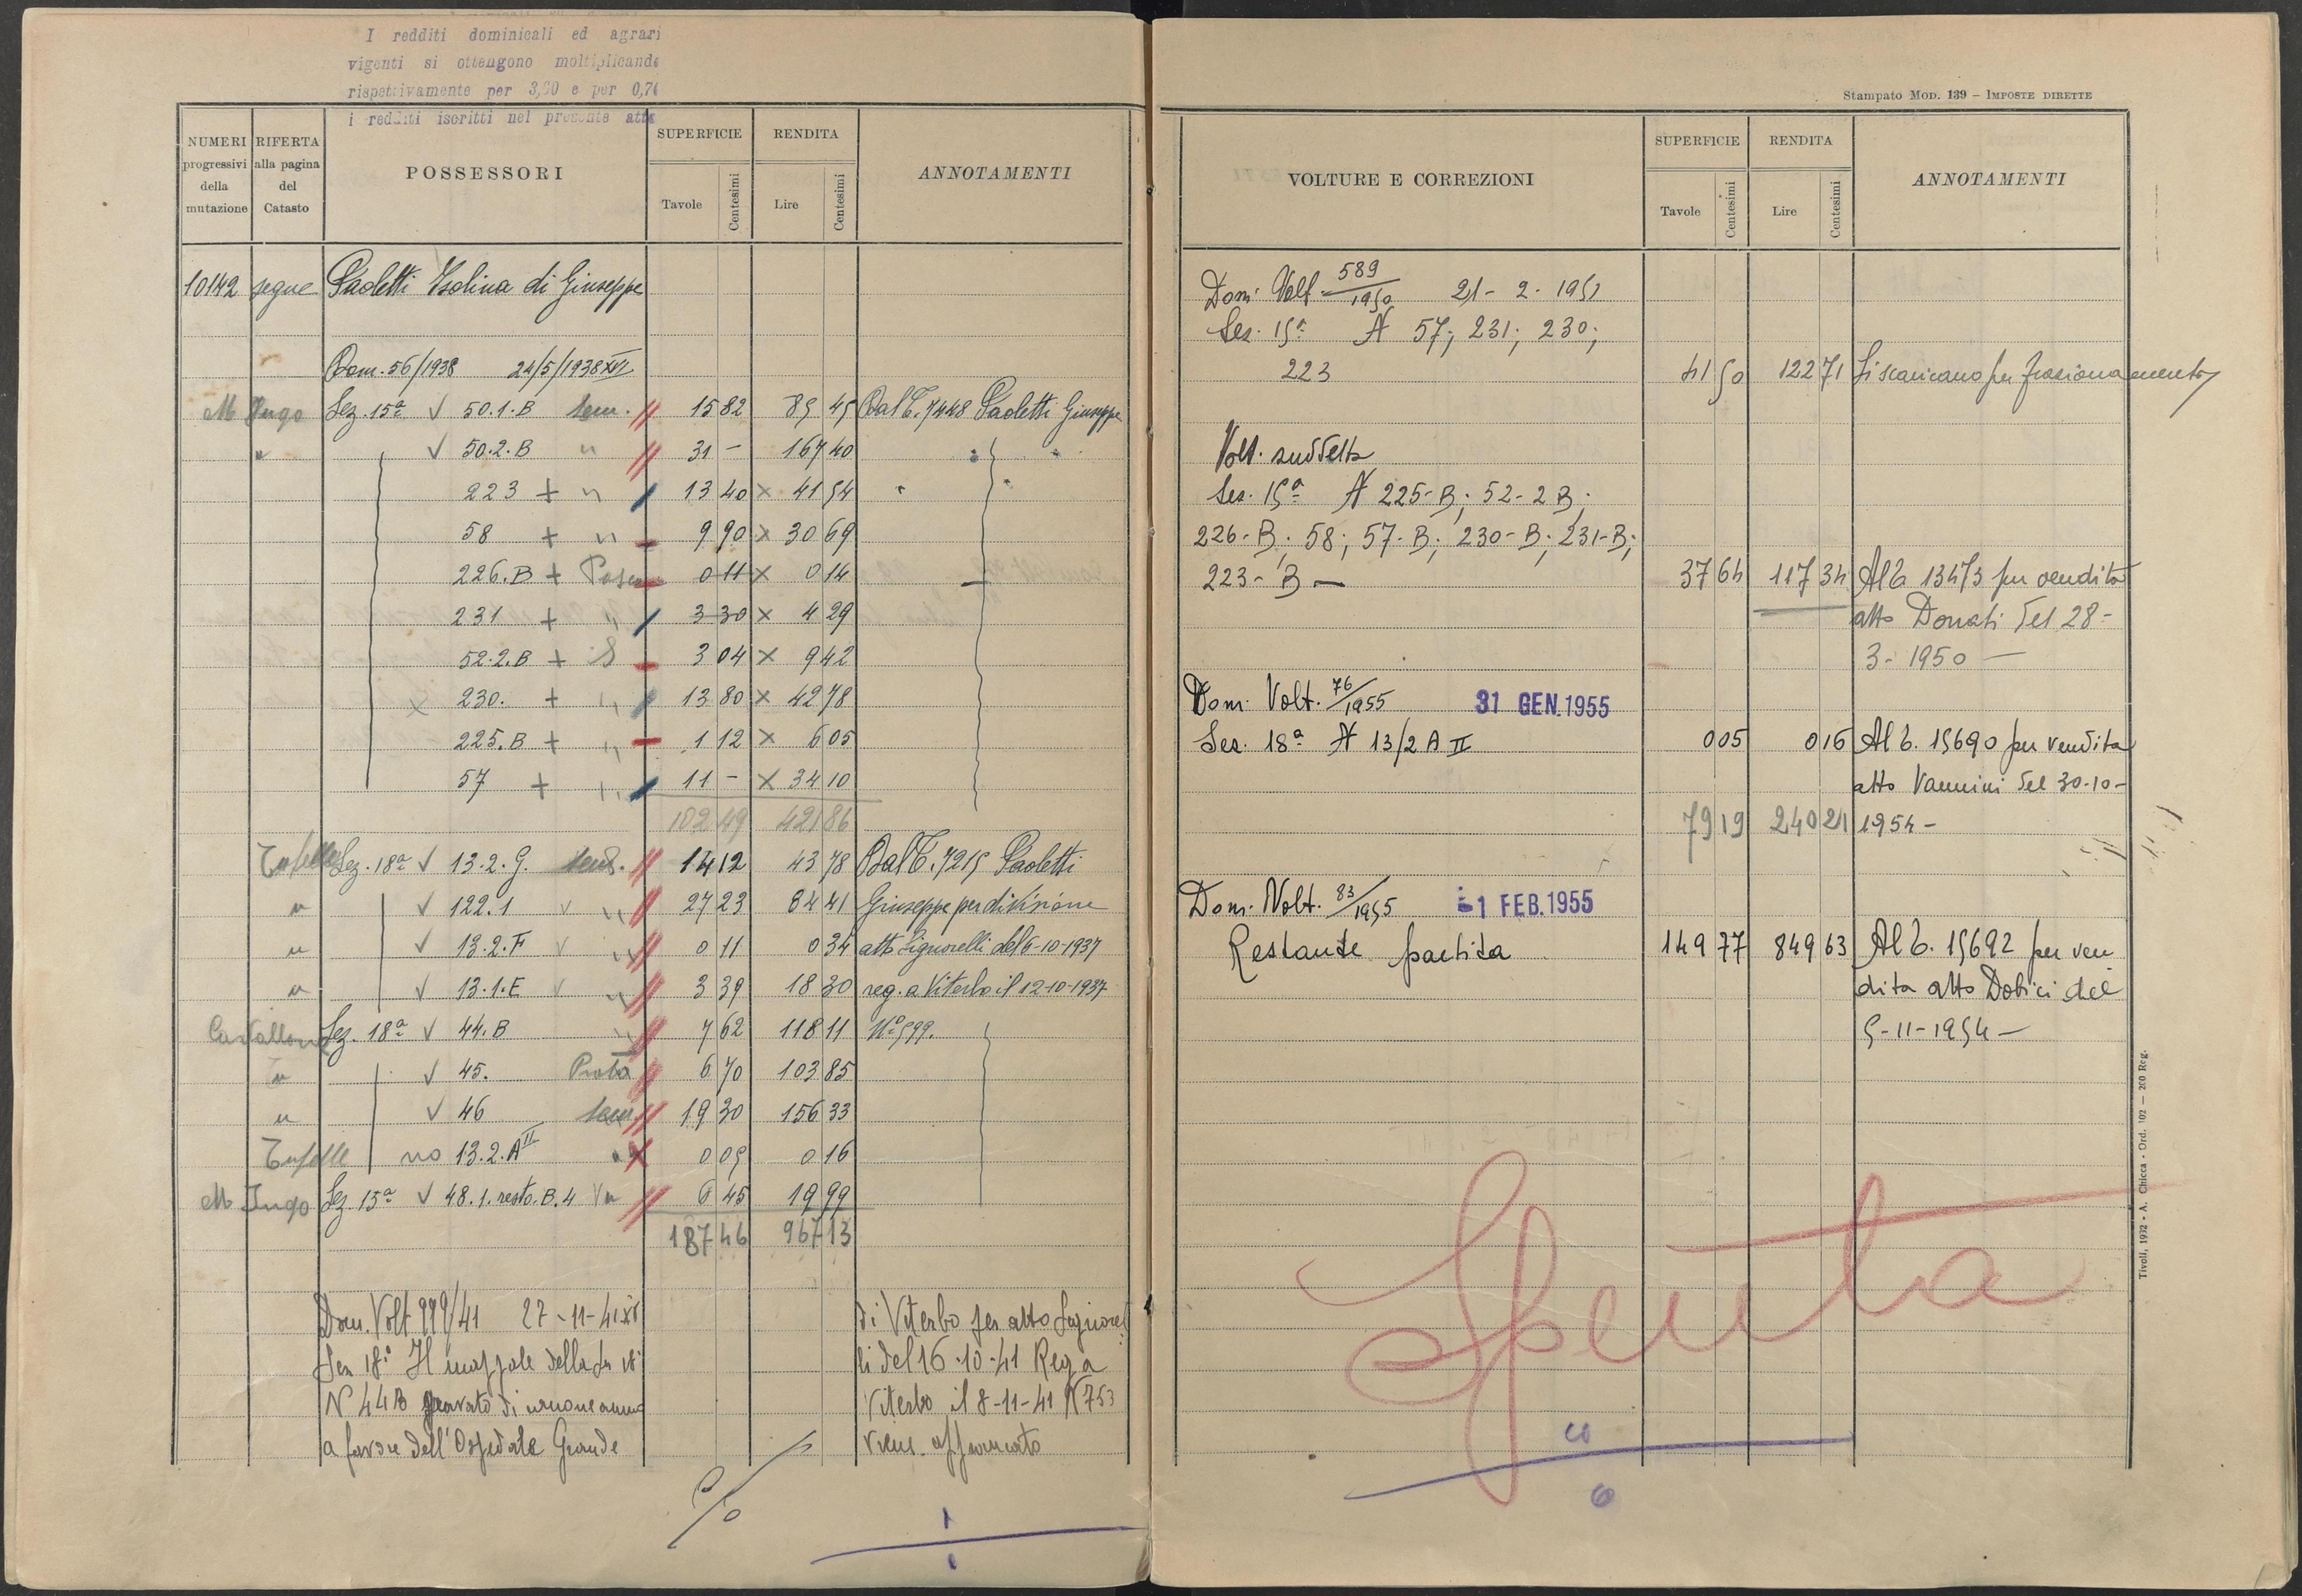 I redditi dominicali ed agrari
vigenti si ottengono moltiplicando
rispettivamente per 3,60 e per 0,74
i redditi iscritti nel presente atto
NUMERI progressivi della mutazione
RIFERTA alla pagina del Catasto
POSSESSORI
SUPERFICIE
Tavole
Centesimi
RENDITA
Lire
Centesimi
ANNOTAMENTI
10142 segue Paoletti Isolina di Giuseppe
Dom. 56/1938 24/5/1938 XVI
M Jugo Sez. 15ª √ 50.1.B sem. // 15 82 85 45 Dal C. 7448 Paoletti Giuseppe
" √ 50.2.B " // 31 - 167 40 " "
223 + " / 13 40 × 41 54 " "
58 + " - 9 90 × 30 69
226.B + Pasc - 0 11 × 0 14
231 + " / 3 30 × 4 29
52.2.B + S - 3 04 × 9 42
× 230. + " / 13 80 × 42 78
225.B + " - 1 12 × 6 05
57 + " / 11 - × 34 10
102 49 421 86
Tufelle Sez. 18ª √ 13.2.G. sem. // 14 12 43 78 Dal C. 7215 Paoletti
" √ 122.1 √ " // 27 23 84 41 Giuseppe per divisione
" √ 13.2.F √ " // 0 11 0 34 atto Signorelli del 6-10-1937
" √ 13.1.E √ " // 3 39 18 30 reg. a Viterbo il 12-10-1937
Cavallone Sez. 18ª √ 44.B " // 7 62 118 11 Nº 599.
" √ 45. Prato // 6 70 103 85
" √ 46 sem // 19 30 156 33
Tufelle no 13.2.A II " × 0 05 0 16
M Jugo Sez. 15ª √ 48.1. resto. B. 4 √ " // 6 45 19 99
187 46 967 13
Dom. Volt 999/41 27-11-41 XX
Sez 18ª Il mappale della sez 18ª
N 44B gravato di canone annuo
a favore dell'Ospedale Grande
di Viterbo per atto Signorel
li del 16-10-41 Reg a
Viterbo il 8-11-41 N 753
viene affrancato
Stampato MOD. 139 – IMPOSTE DIRETTE
VOLTURE E CORREZIONI
SUPERFICIE
Tavole
Centesimi
RENDITA
Lire
Centesimi
ANNOTAMENTI
Dom. Volt. 589/1950 21-2-1951
Sez. 15ª N 57; 231; 230;
223 41 50 122 71 Si scaricano per frazionamento
Volt. suddetta
Sez. 15ª N 225-B; 52-2B;
226-B; 58; 57-B; 230-B; 231-B;
223-B — 37 64 117 34 Al C. 13473 per vendita
atto Donati del 28-
3-1950 —
Dom. Volt. 76/1955 31 GEN. 1955
Sez. 18ª N 13/2 A II 0 05 0 16 Al C. 15690 per vendita
atto Vannini del 30-10-
79 19 240 21 1954-
Dom. Volt. 83/1955 -1 FEB. 1955
Restante partita 149 77 849 63 Al C. 15692 per ven
dita atto Dobici del
5-11-1954 —
Spenta
Tivoli, 1932 - A. Chicca - Ord. 102 — 200 Reg.